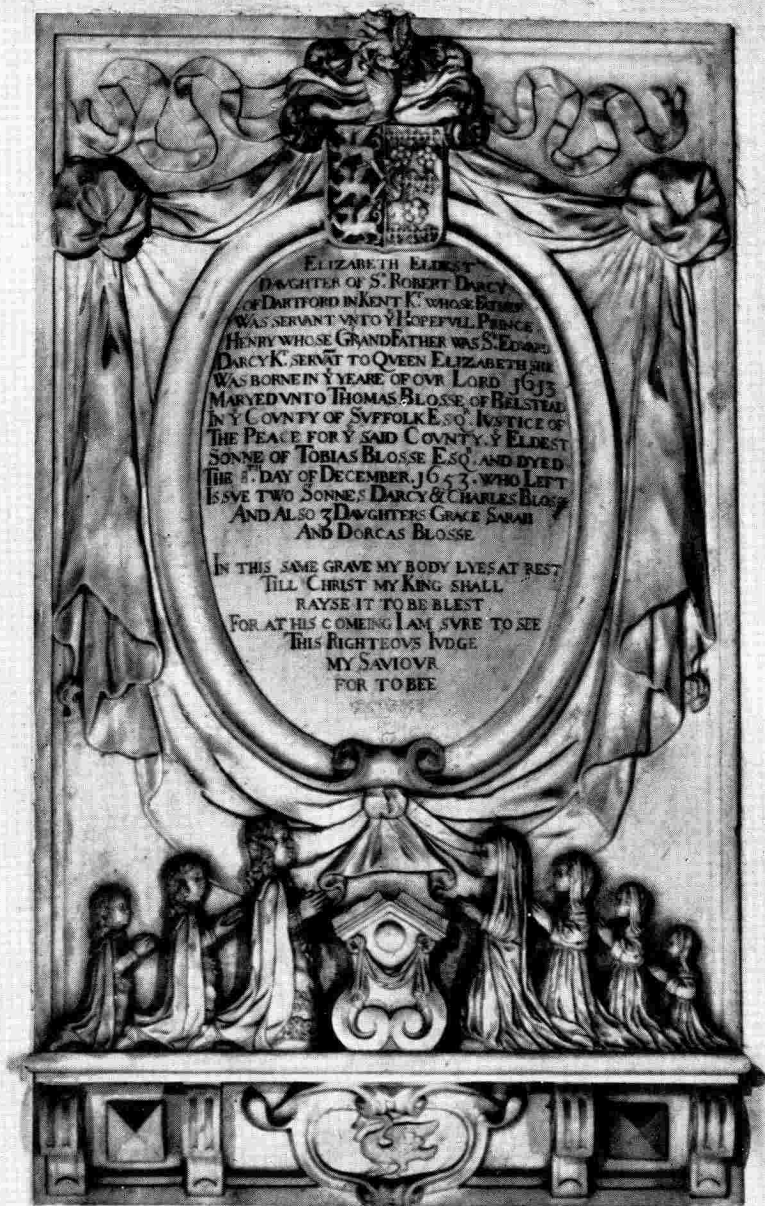 ELIZABETH ELDEST
DAVGHTER OF Sᴿ ROBERT DARCY
OF DARTFORD IN KENT Kᵀ WHOSE FATHER
WAS SERVANT VNTO Yᴱ HOPEFVLL PRINCE
HENRY WHOSE GRANDFATHER WAS Sᴿ EDWARD
DARCY Kᵀ SERVĀT TO QUEEN ELIZABETH SHE
WAS BORNE IN Yᴱ YEARE OF OVR LORD 1613
MARYED VNTO THOMAS BLOSSE OF BELSTEAD
IN Yᴱ COVNTY OF SVFFOLK ESQᴿ IVSTICE OF
THE PEACE FOR Yᴱ SAID COVNTY. Yᴱ ELDEST
SONNE OF TOBIAS BLOSSE ESQᴿ. AND DYED
THE DAY OF DECEMBER. 1653. WHO LEFT
ISSVE TWO SONNES DARCY & CHARLES BLOSSE
AND ALSO 3 DAVGHTERS GRACE SARAH
AND DORCAS BLOSSE
IN THIS SAME GRAVE MY BODY LYES AT REST
TILL CHRIST MY KING SHALL
RAYSE IT TO BE BLEST.
FOR AT HIS COMEING I AM SVRE TO SEE
THIS RIGHTEOVS IVDGE
MY SAVIOVR
FOR TO BEE